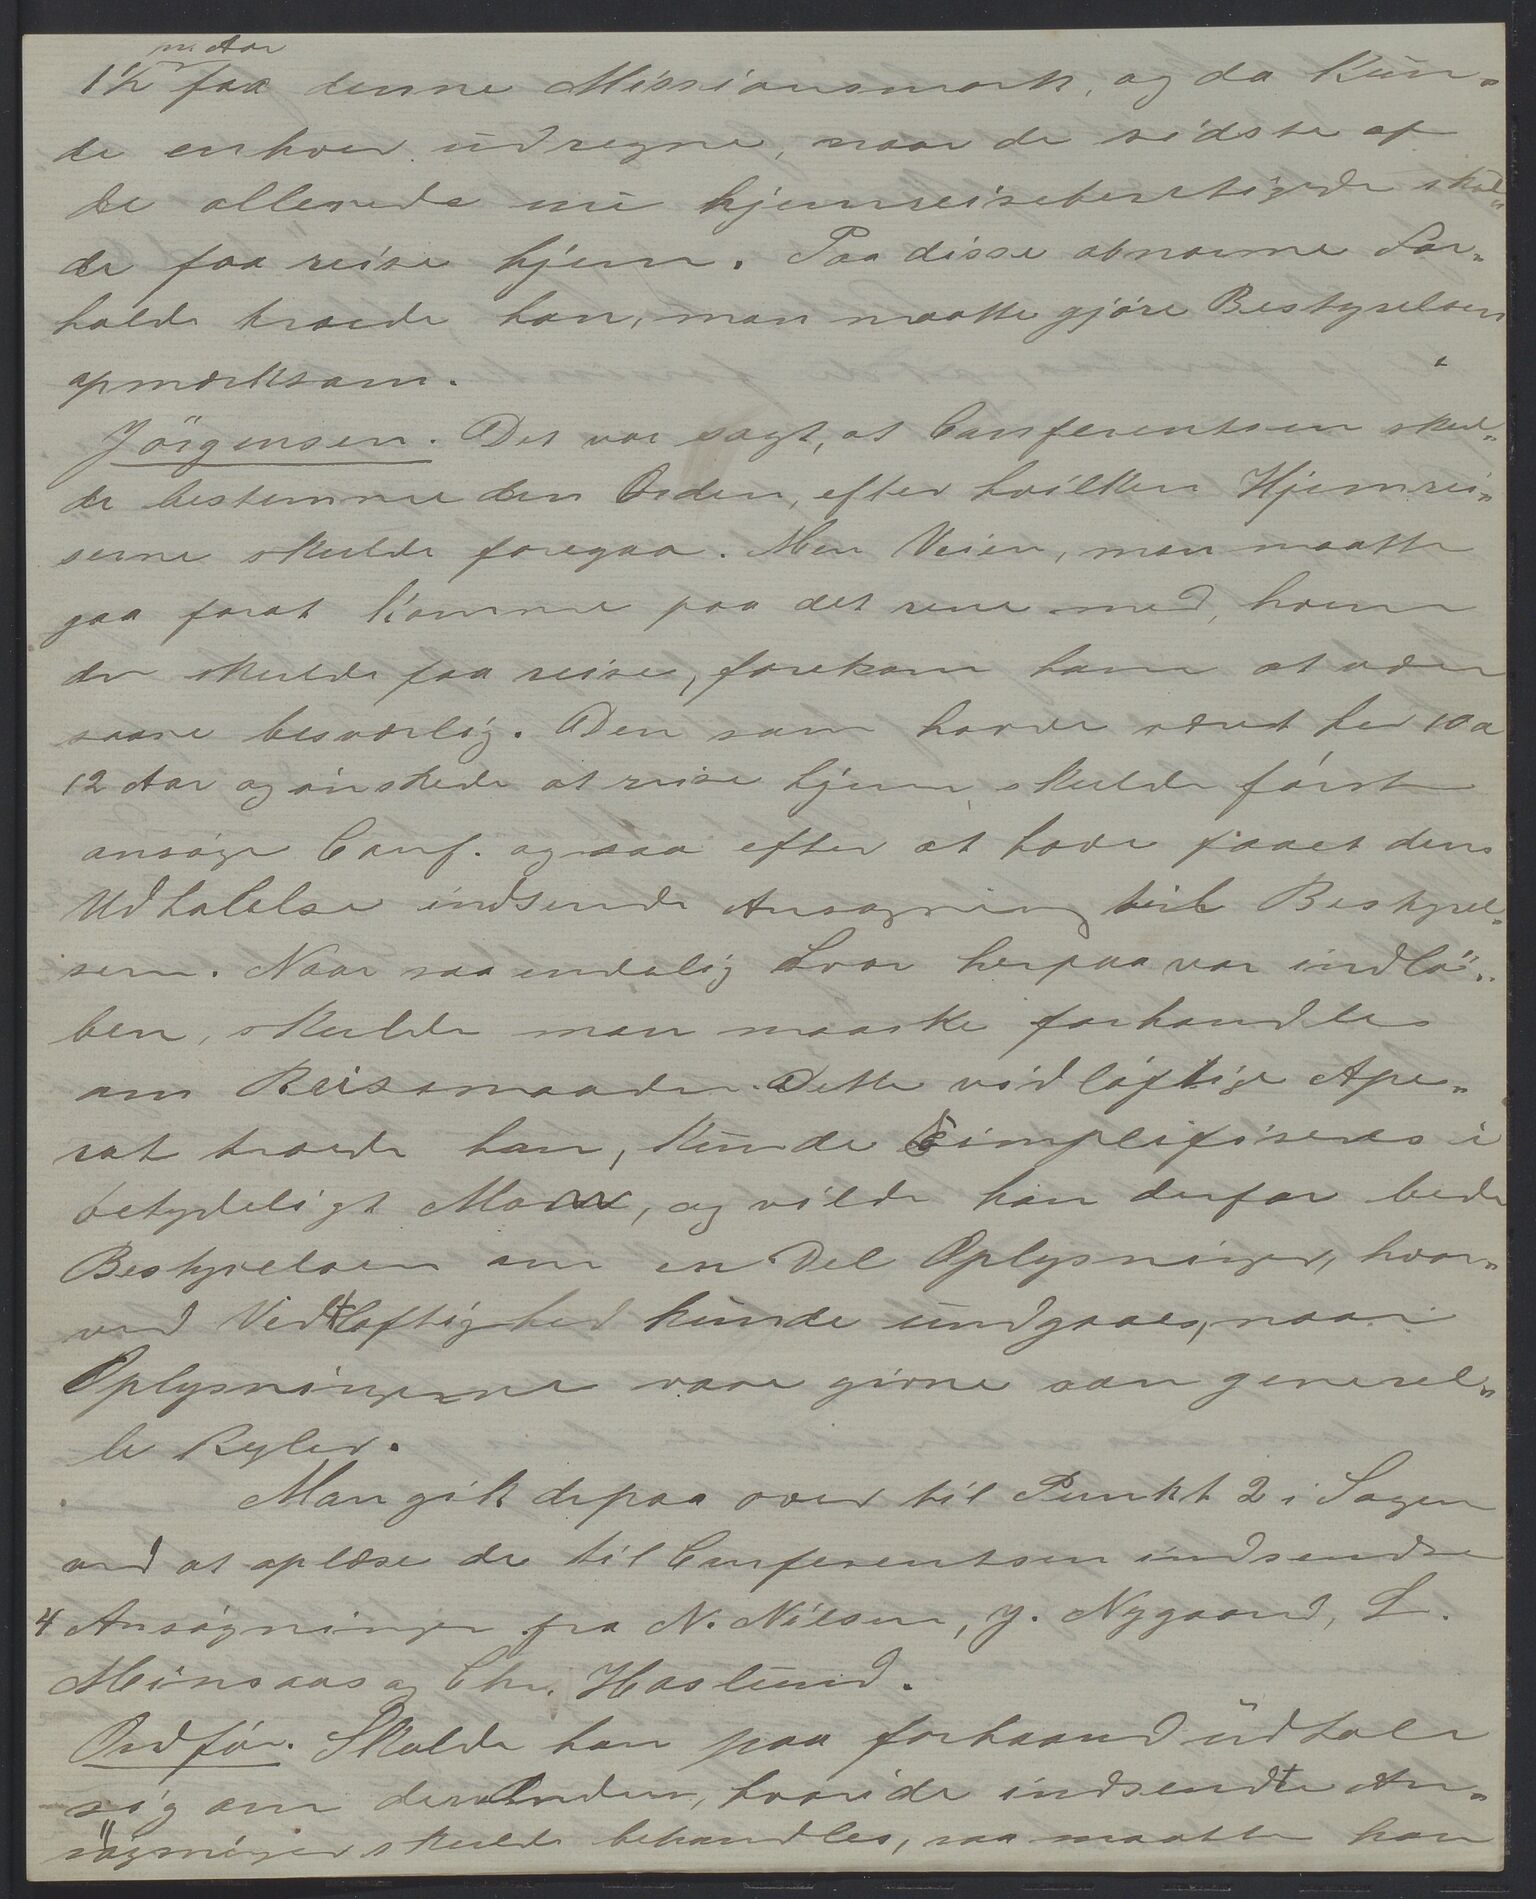 n. Aar
1½ faa denne Missionsmark, og da kun-
de enhver udregne, naar de sidste af
de allerede nu hjemreiseberetigede skul-
de faa reise hjem. Paa disse abnorme For-
holde troede han, man maatte gjøre Bestyrelsen
opmærksom.
Jörgensen. Det var sagt, at Conferentsen skul-
de bestemme den Orden, efter hvilken Hjemrei-
serne skulde foregaa. Men Veien, man maatte
gaa forat komme paa det rene med, hvem
der skulde faa reise, forekom ham at være
saare besværlig. Den som havde været her 10 a
12 Aar og ønskede at reise hjem, skulde først
ansøge Conf. og saa efter at have faaet dens
Udtalelse indsende Ansøgning til Bestyrel-
sen. Naar saa endelig Svar herpaa var indlö-
ben, skulde man maaske forhandles
om Reisemaaden. Dette vidløftige Apa-
rat troede han, kunde simplifiseres i
betydeligt Mon, og vilde han derfor bede
Bestyrelsen om en Del Oplysninger, hvor-
ved Vidtløftighed kunde undgaaes, naar
Oplysningerne vare givne som generel-
le Regler.
Man gik derpaa over til Punkt 2 i Sagen
ved at oplæse de til Conferentsen indsendte
4 Ansøgninger fra N. Nilsen, J. Nygaard, L.
Meinsaas og Chr. Haslund.
Ordfør. Skulde han paa forhaand udtale
sig om den Orden, hvori de indsendte An-
søgninger skulde behandles, saa maatte han